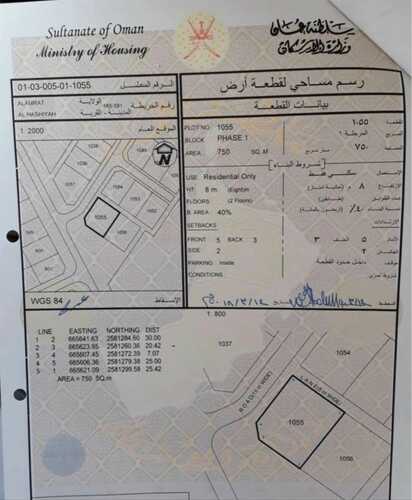 Sultanate of Oman
Ministry of Housing
سلطنة عمان
وزارة الإسكان
01-03-005-01-1055
الرقم المتسلسل
رسم مساحي لقطعة أرض
AL AMRAT
الولاية
AL NAHDHAH
المدينة - القرية
رقم الخريطة
بيانات القطعة
1: 2000
الموقع العام
PLOT NO 1055
القطعة ١٠٥٥
BLOCK PHASE 1
المربع المرحلة ١
AREA 750 SQ.M
المساحة ٧٥٠
شروط البناء
USE Residential Only
الاستعمال سكني فقط
HT: 8 m (Eight)m
FLOORS (2 Floors)
عدد الطوابق (طابقان)
B. AREA 40%
SETBACKS
الارتدادات
FRONT 5 BACK 3
الأمام ٥ الخلف ٣
SIDE 2
الجانب ٢
PARKING Inside
داخل حدود القطعة
CONDITIONS
شروط أخرى
1055
WGS 84
الإسقاط
1: 800
LINE EASTING NORTHING DIST
1 2 665641.63 2581284.60 30.00
2 3 665623.95 2581260.36 20.42
3 4 665607.45 2581272.39 7.07
4 5 665606.36 2581279.38 25.00
5 1 665621.09 2581299.58 25.42
AREA = 750 SQ.m
1037
1054
1055
1056